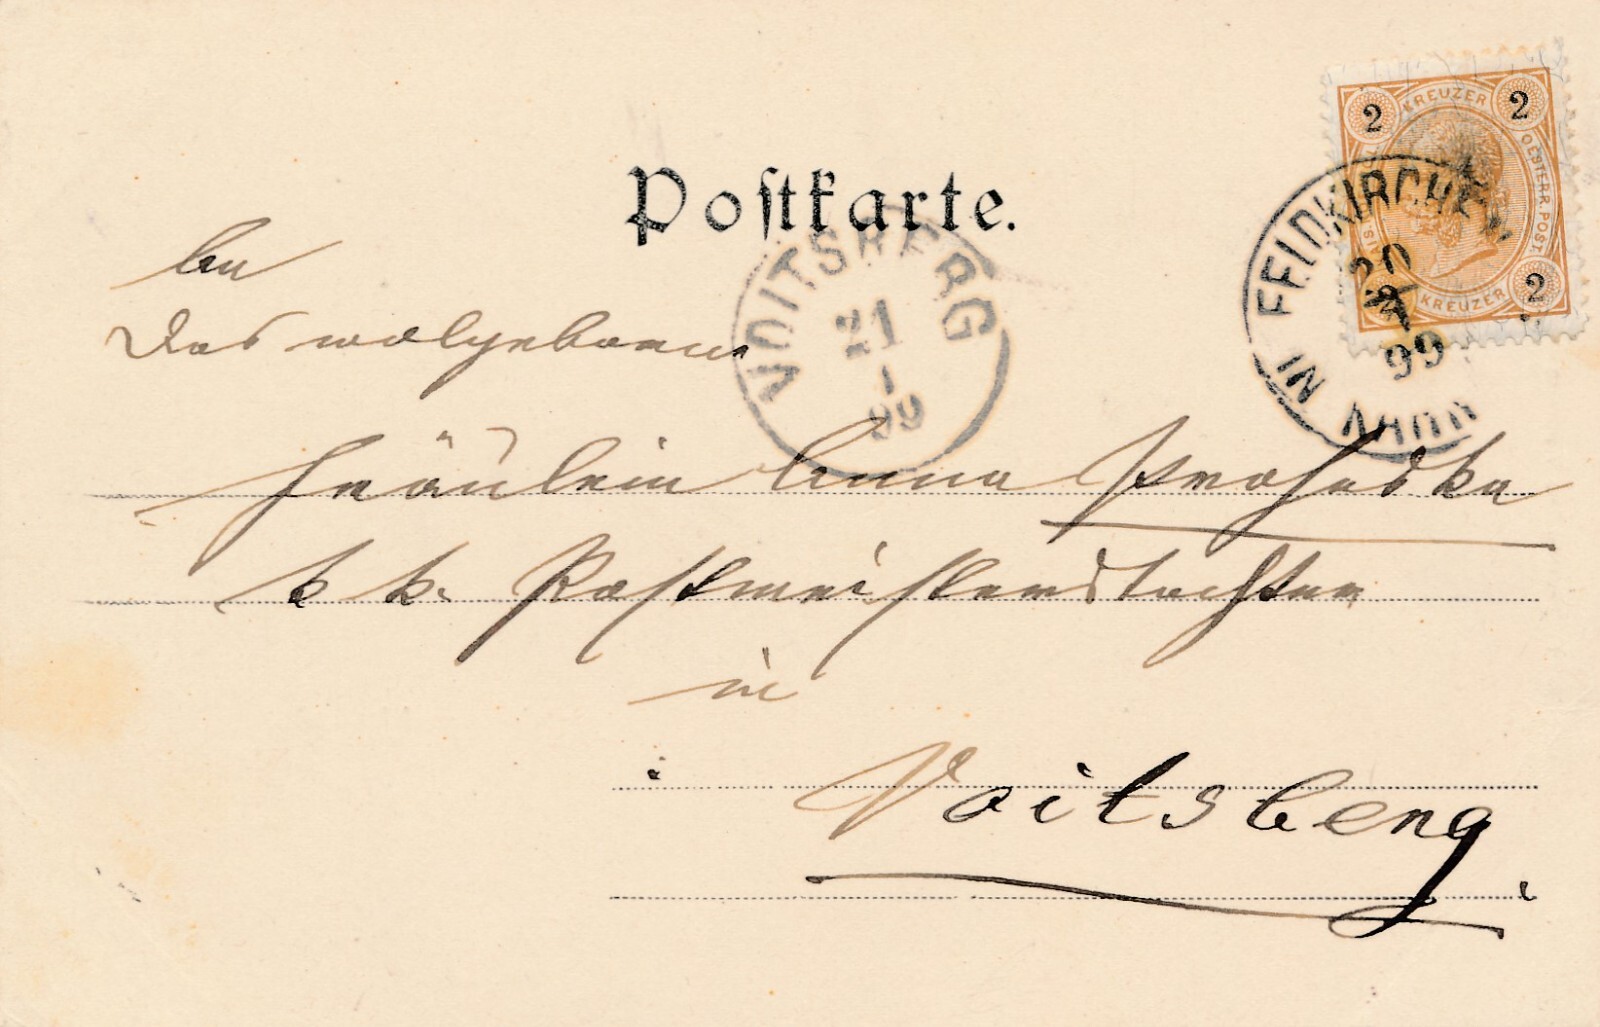 Postkarte.
2 KREUZER 2
OESTERR. POST
KREUZER 2
FELDKIRCHEN IN
20
99
VOITSBERG
21
1
99
An
Das wolgeborene
Fräulein Anna Prohaska
k k. Postmeisterstochter
in
Voitsberg.